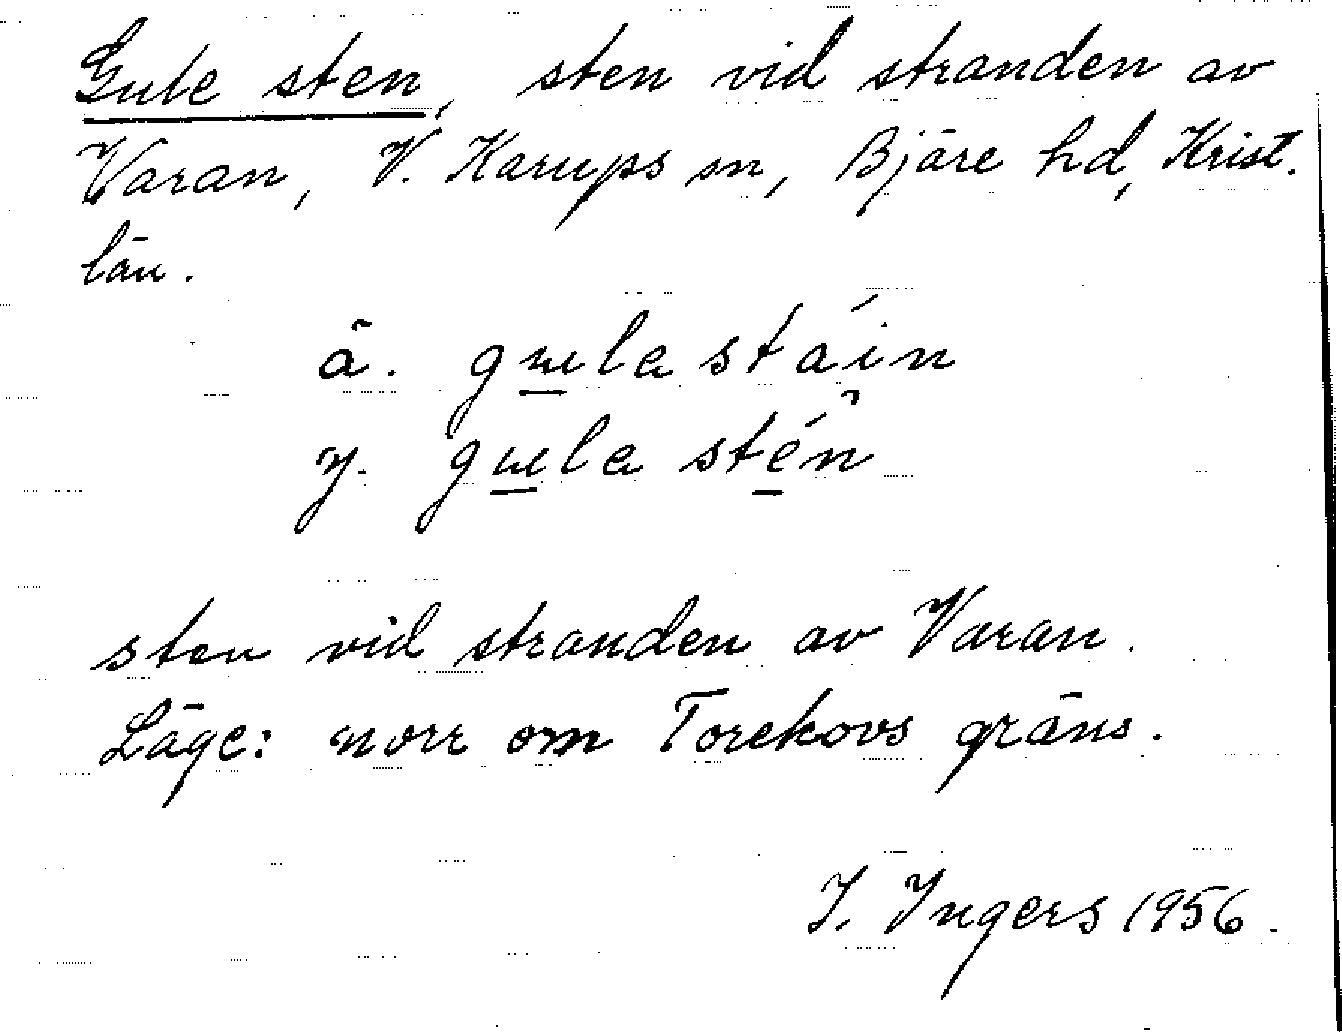 Gule sten, sten vid stranden av
Varan, V. Karups sn, Bjäre hd, Krist.
län.
ä. gula stáin
y. gula stén
sten vid stranden av Varan.
Läge: norr om Torekovs gräns.
I. Ingers 1956.